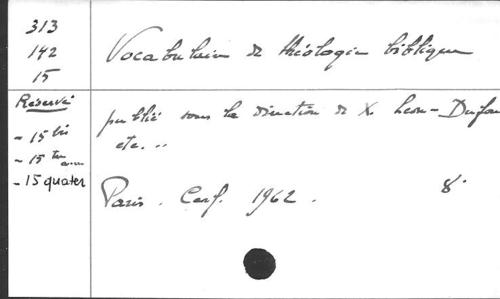 313
142
15
Réservé
- 15 bis
- 15 ter
- 15 quater
Vocabulaire de théologie biblique
publié sous la direction de X. Léon-Dufour
etc...
Paris. Cerf. 1962. 8°